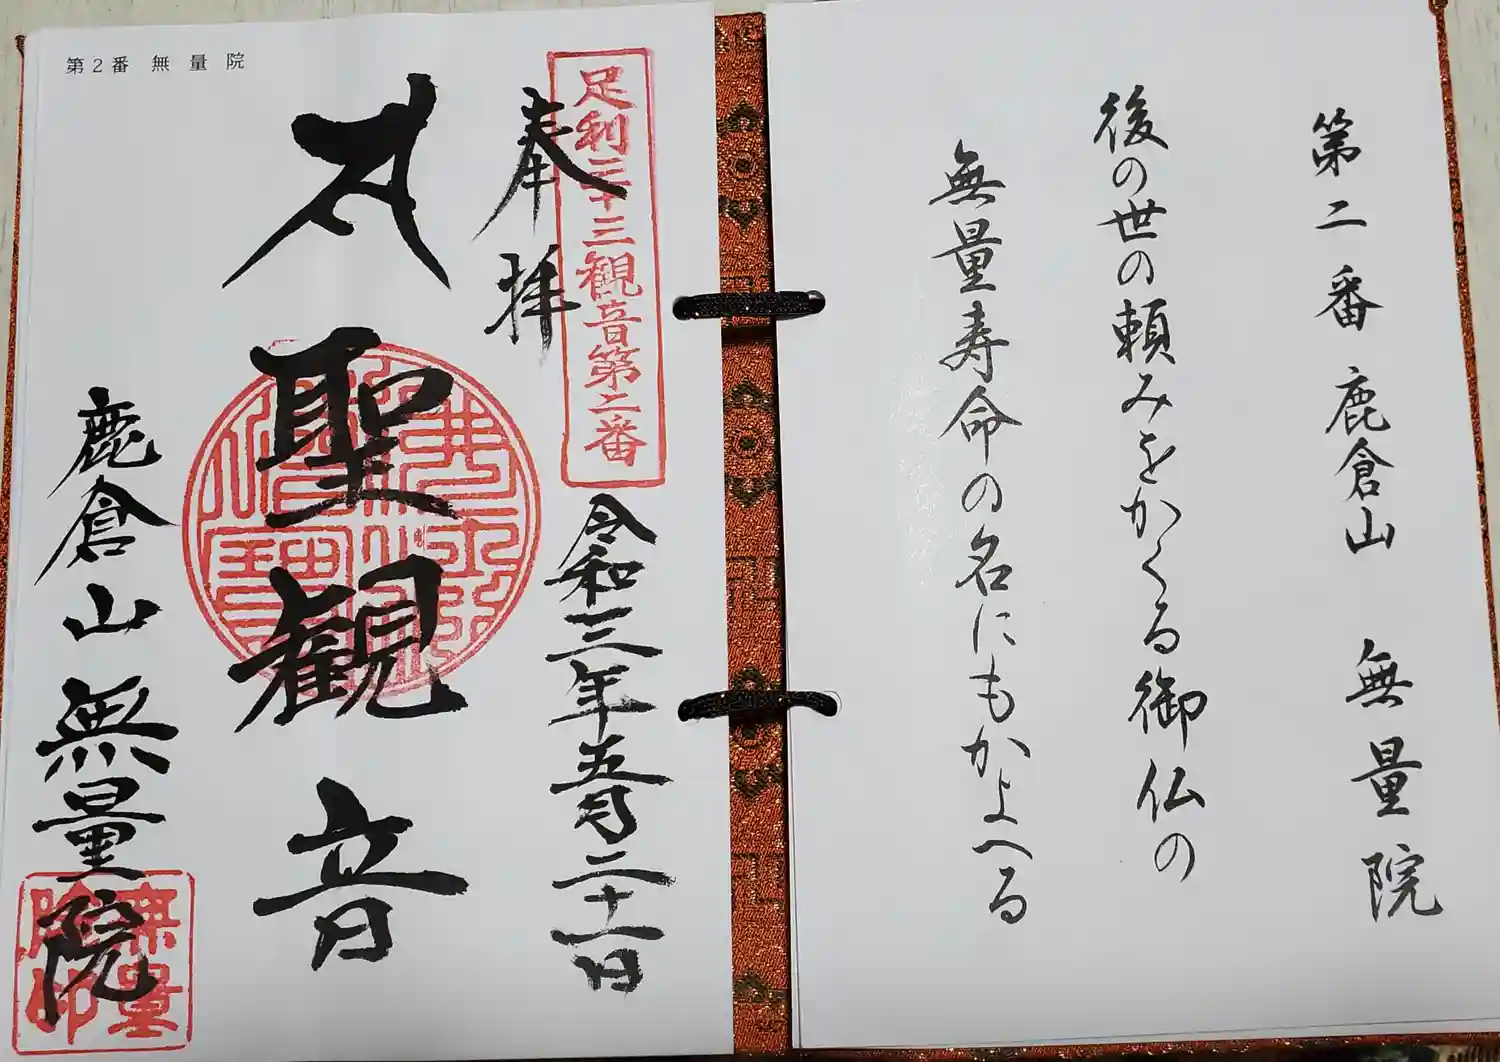 第二番 鹿倉山 無量院
後の世の頼みをかくる御仏の
無量寿命の名にもかよへる
足利三十三観音第二番
奉拝
令和三年五月二十一日
聖観音
鹿倉山 無量院
無量院印
第2番 無量院